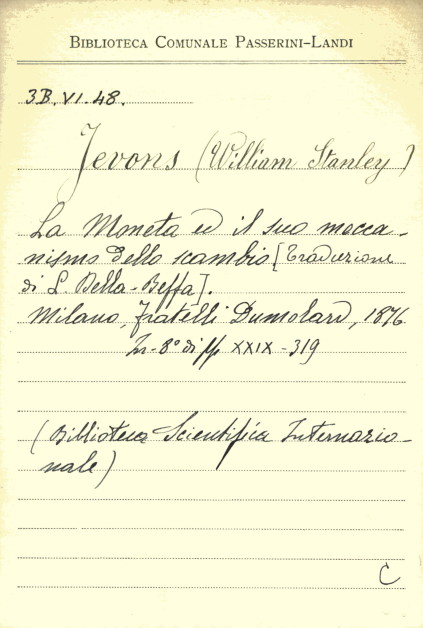 BIBLIOTECA COMUNALE PASSERINI-LANDI
3B.VI.48.
Jevons (William Stanley)
La Moneta ed il suo mecca-
nismo dello scambio [Traduzione
di L. Bella-Beffa].
Milano, Fratelli Dumolard, 1876
In-8° di pp XXIX-319
(Biblioteca Scientifica Internazio-
nale)
C